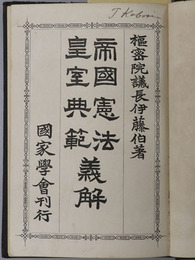 樞密院議長伊藤伯著
帝國憲法
皇室典範
義解
國家學會刊行